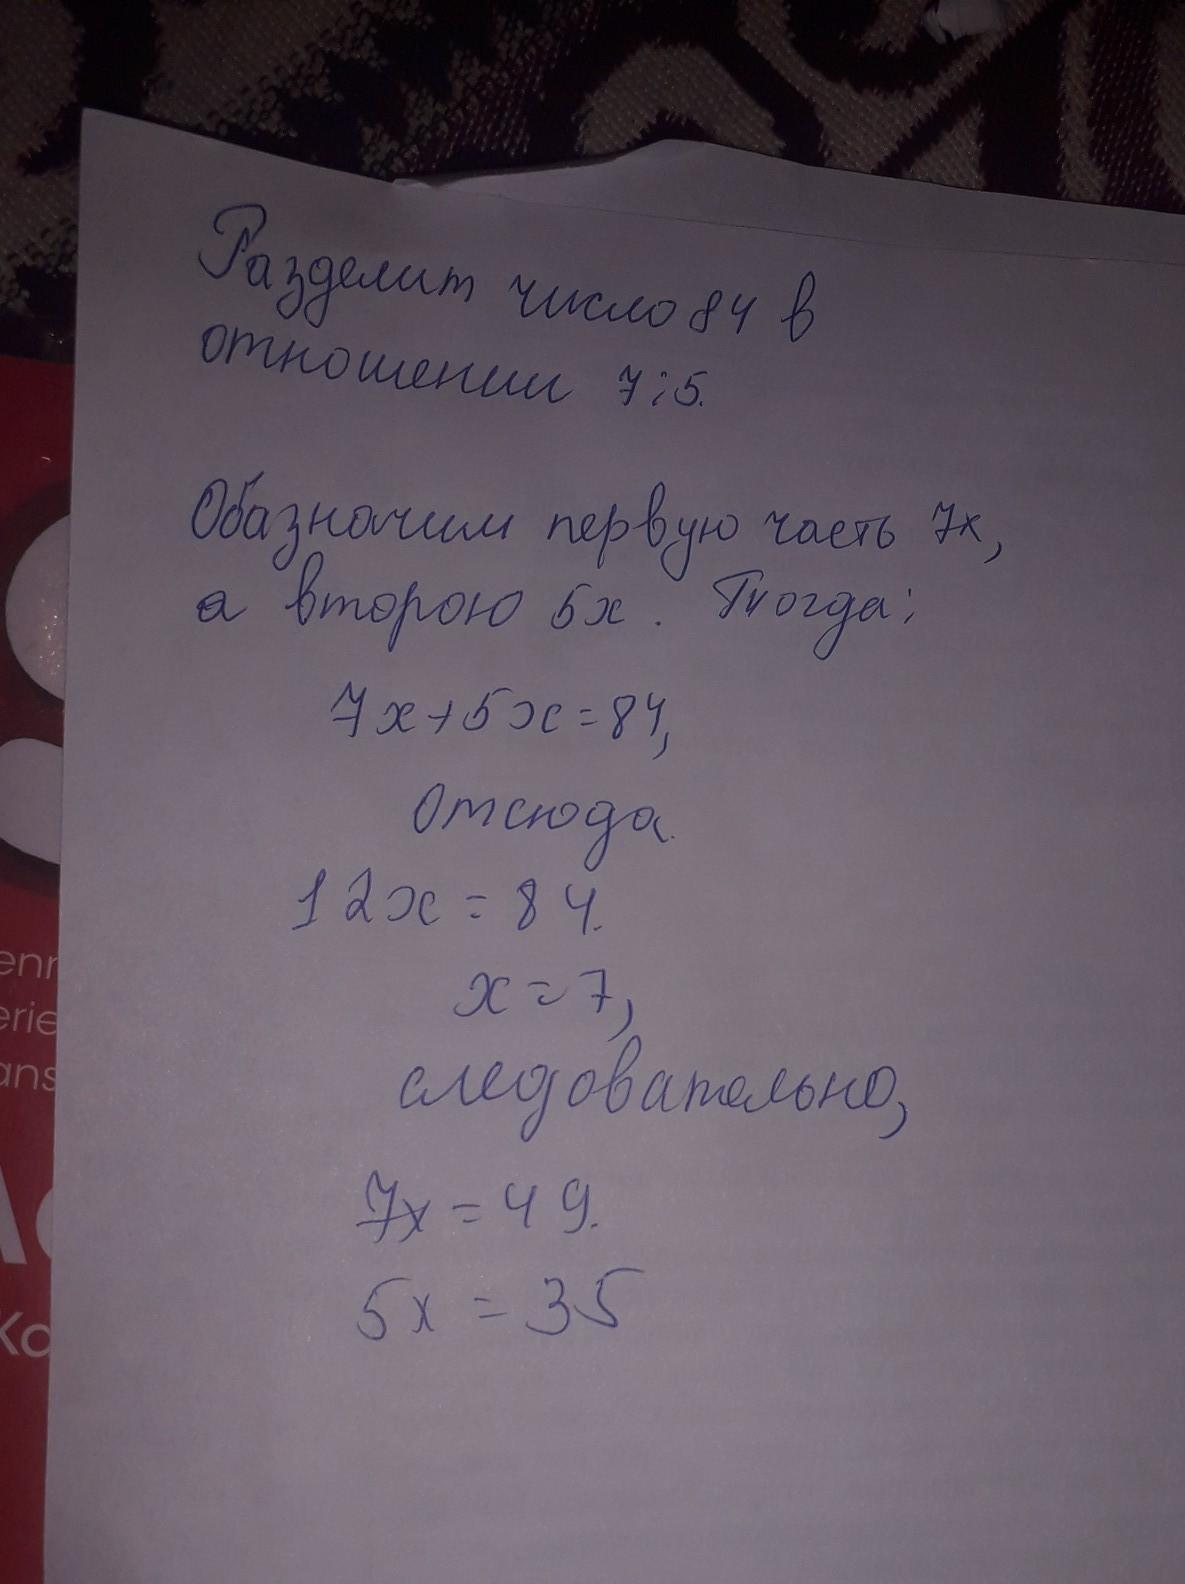 Разделит число 84 в
отношении 7:5.
Обазначим первую часть 7х,
а второю 5х. Тогда:
7х+5х=84,
Отсюда
12х=84.
х=7,
следовательно,
7х=49.
5х=35
erie
ans
Ko